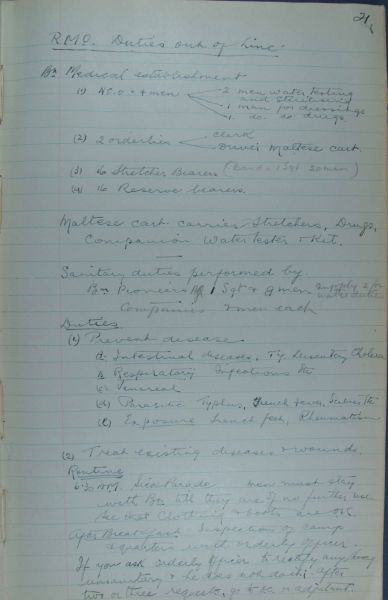 21
R.M.O. Duties out of Line.
Bn Medical establishment
(1) N.C.O. + 4 men
2 men water testing
and sterilising
1 man for dressings
1 do. do drugs.
(2) 2 orderlies
clerk
Driver Maltese cart.
(3) 16 Stretcher Bearers (Band = 1 Sgt 20 men)
(4) 16 Reserve bearers.
Maltese cart carries Stretchers, Drugs,
Companion Water tester + Kit.
Sanitary duties performed by
Bn Pioneers HQ 1 Sgt + 9 men supply 2 for
water duties
Companies 2 men each
Duties
(1) Prevent disease
a. Intestinal diseases. Ty. Dysentery Cholera
b. Respiratory Infections etc
(c) Venereal
(d) Parasitic Typhus, Trench fever, Scabies etc
(e) Exposure Trench feet, Rheumatism
(2) Treat existing diseases + wounds.
Routine
6.30 AM. Sick Parade men must stay
with Bn till they are of no further use
See that Clothing + boots are O.K.
After Breakfast. Inspection of camp
+ quarters with orderly officer.
If you ask orderly officer to rectify anything
unsanitary + he does not do it after
two or three requests, go to C.O. or adjutant.